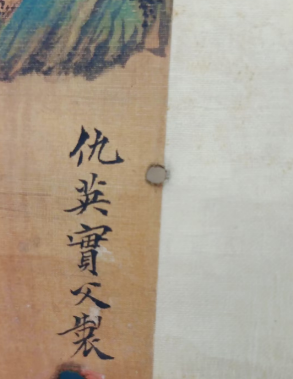 仇英實父製